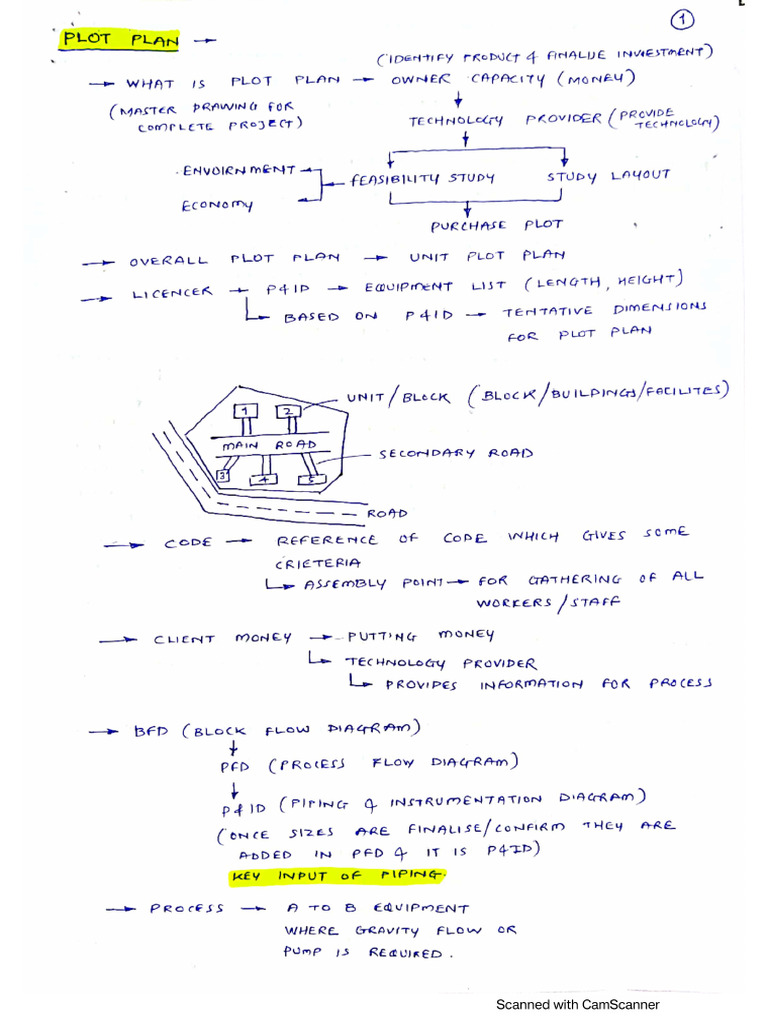 1
PLOT PLAN →
(IDENTIFY PRODUCT & FINALISE INVESTMENT)
→ WHAT IS PLOT PLAN → OWNER CAPACITY (MONEY)
(MASTER DRAWING FOR
COMPLETE PROJECT)
TECHNOLOGY PROVIDER (PROVIDE
TECHNOLOGY)
ENVOIRNMENT
FEASIBILITY STUDY STUDY LAYOUT
ECONOMY
PURCHASE PLOT
→ OVERALL PLOT PLAN → UNIT PLOT PLAN
→ LICENCER → P&ID → EQUIPMENT LIST (LENGTH, HEIGHT)
↳ BASED ON P&ID → TENTATIVE DIMENSIONS
FOR PLOT PLAN
UNIT/BLOCK (BLOCK/BUILDINGS/FACILITES)
1 2
MAIN ROAD
SECONDARY ROAD
3 4 5
ROAD
→ CODE → REFERENCE OF CODE WHICH GIVES SOME
CRIETERIA
↳ ASSEMBLY POINT → FOR GATHERING OF ALL
WORKERS/STAFF
→ CLIENT MONEY → PUTTING MONEY
↳ TECHNOLOGY PROVIDER
↳ PROVIDES INFORMATION FOR PROCESS
→ BFD (BLOCK FLOW DIAGRAM)
↓
PFD (PROCESS FLOW DIAGRAM)
↓
P&ID (PIPING & INSTRUMENTATION DIAGRAM)
(ONCE SIZES ARE FINALISE/CONFIRM THEY ARE
ADDED IN PFD & IT IS P&ID)
KEY INPUT OF PIPING.
→ PROCESS → A TO B EQUIPMENT
WHERE GRAVITY FLOW OR
PUMP IS REQUIRED.
Scanned with CamScanner